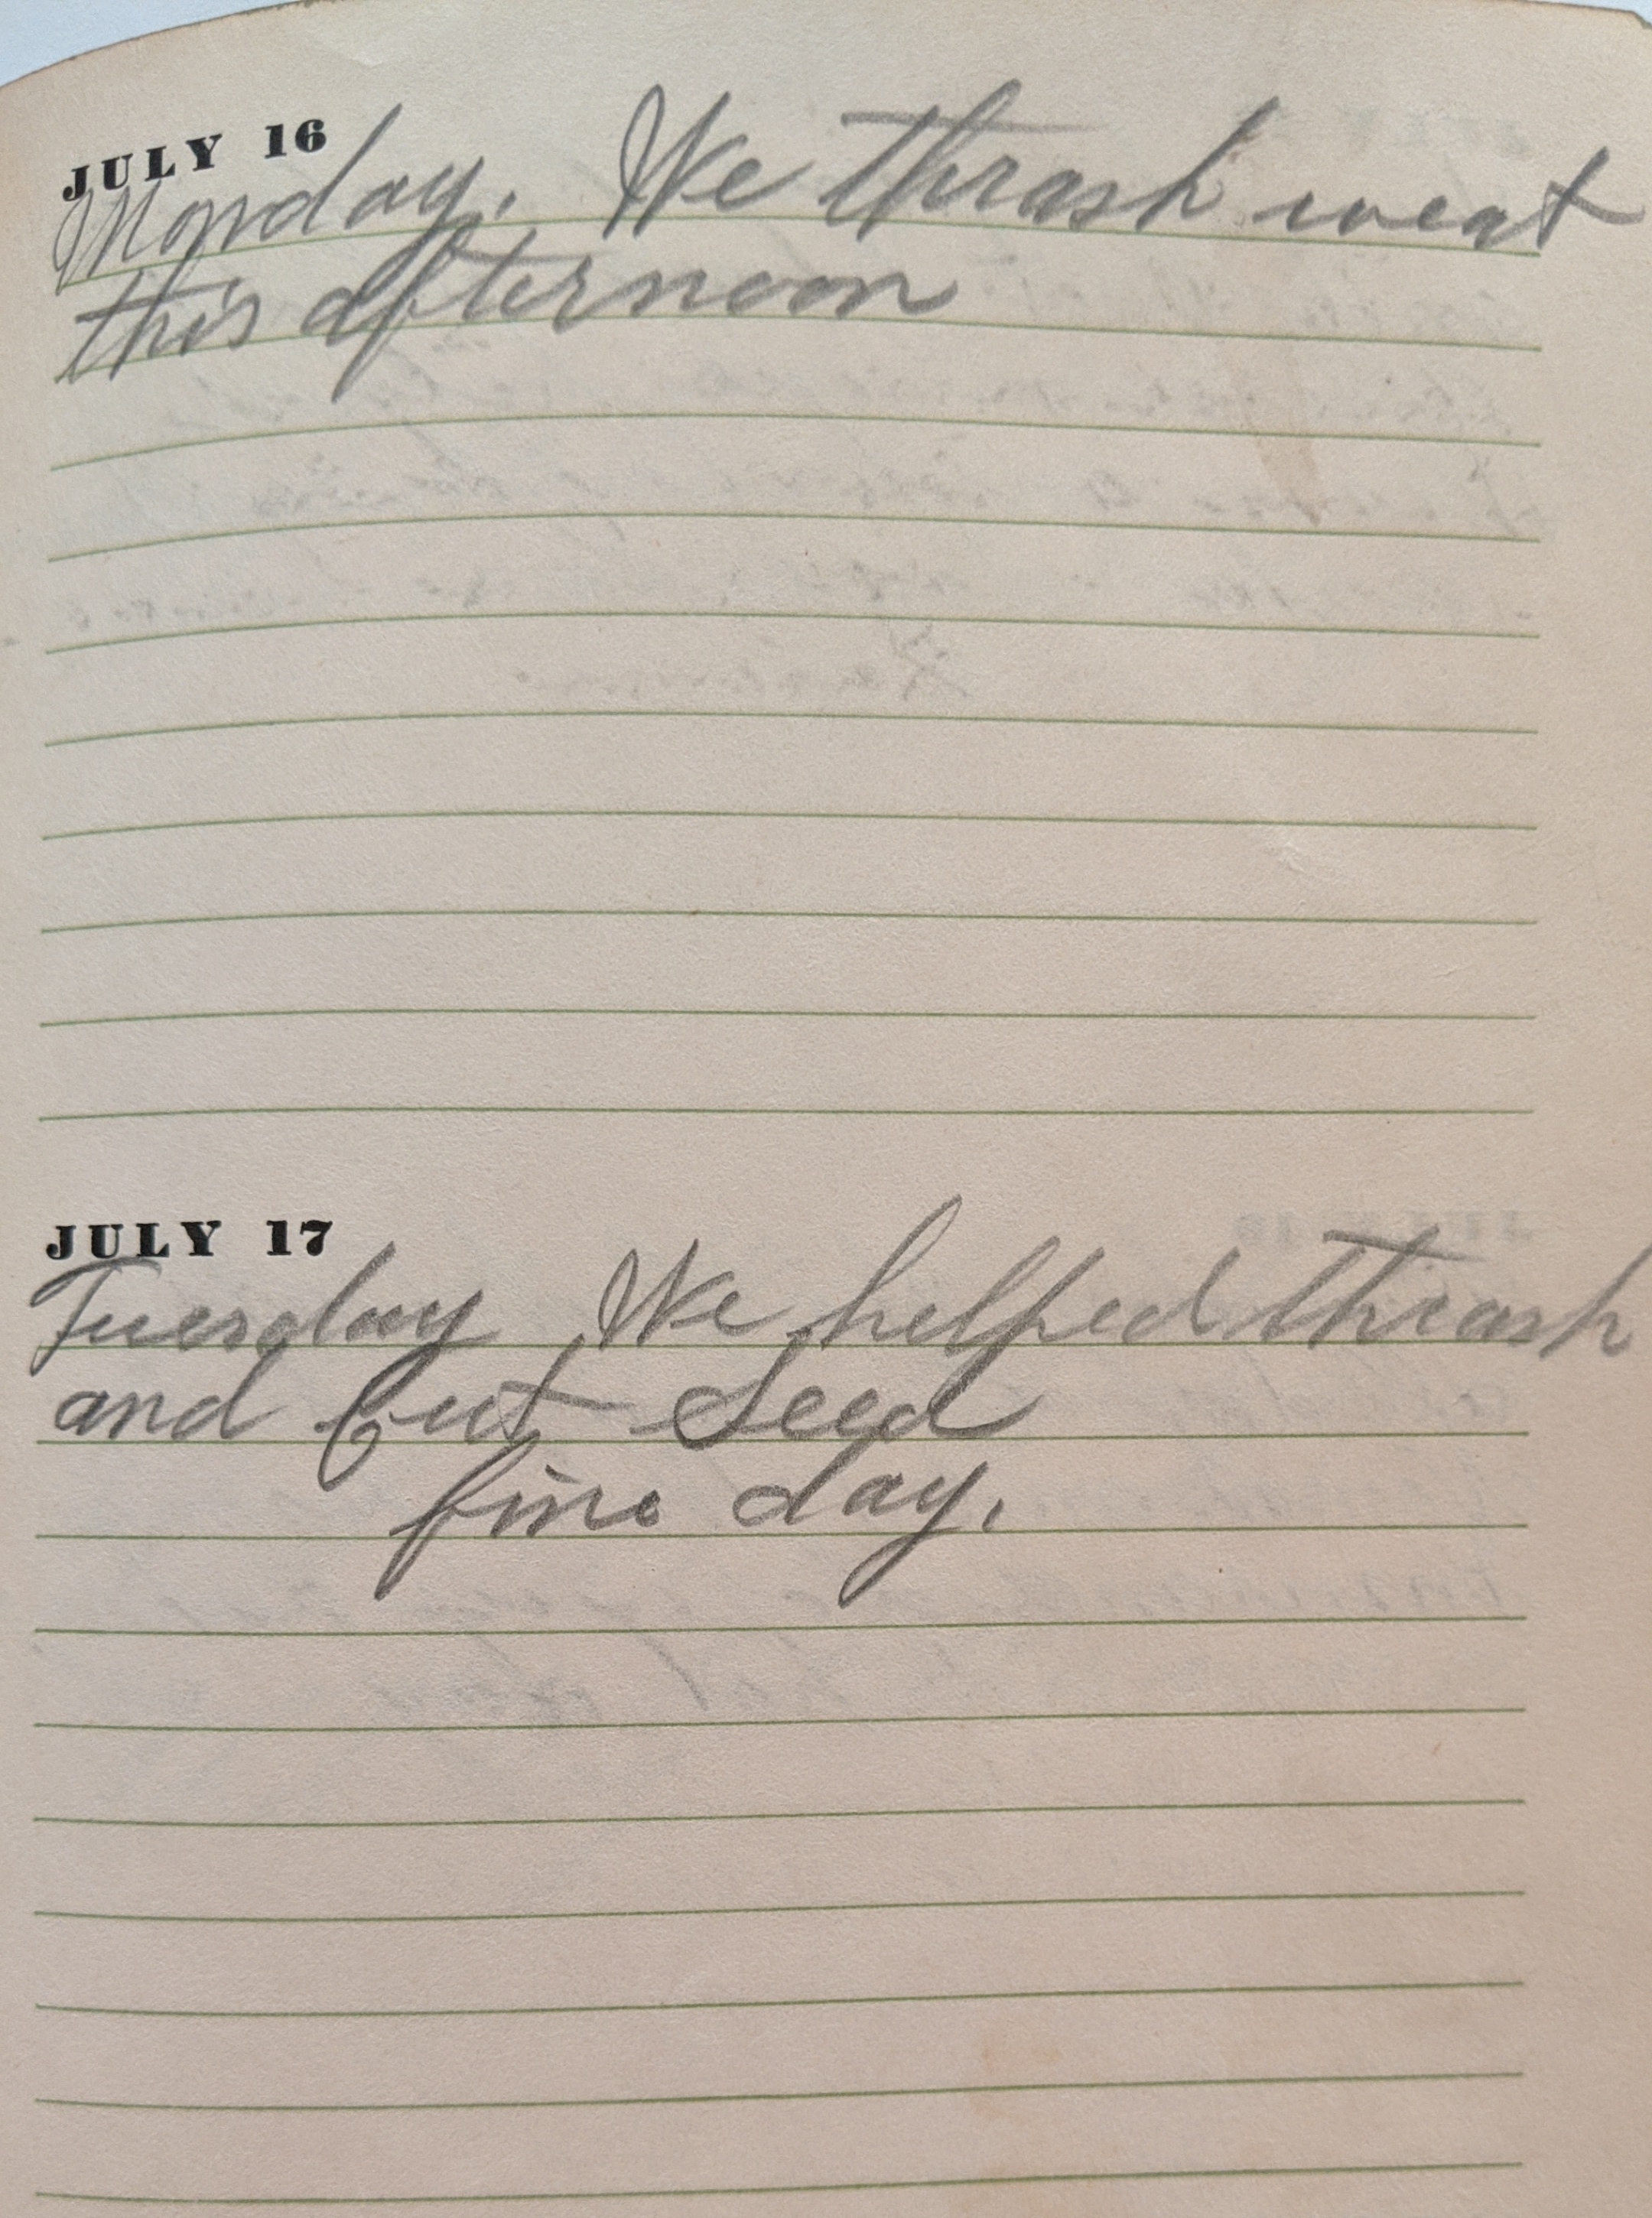 JULY 16
Monday. We thrash weat
this afternoon
JULY 17
Tuesday We helped thrash
and Cut Seed
fine day.